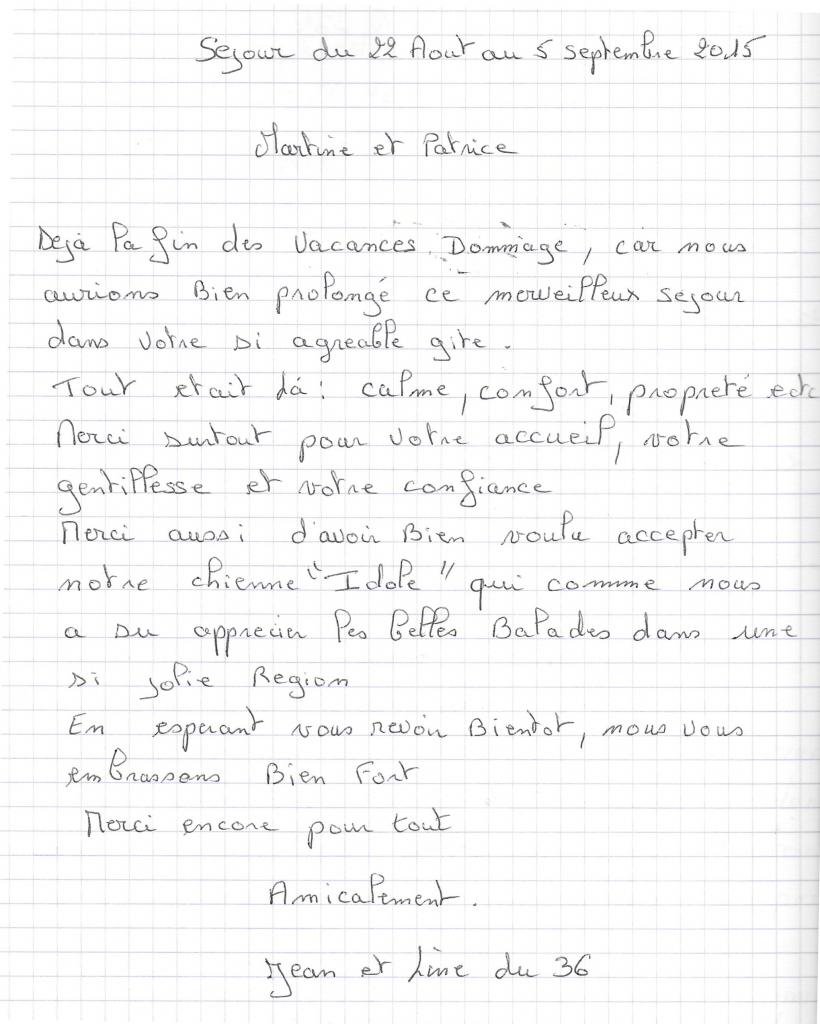 Séjour du 22 Aout au 5 septembre 2015
Martine et Patrice
Dejà la fin des vacances. Dommage, car nous
aurions Bien prolongé ce merveilleux sejour
dans votre si agreable gite.
Tout etait là : calme, confort, propreté etc
Merci surtout pour votre accueil, votre
gentillesse et votre confiance
Merci aussi d'avoir Bien voulu accepter
notre chienne "Idole" qui comme nous
a su apprecier les belles Balades dans une
si jolie Region
En esperant vous revoir Bientot, nous vous
embrassons Bien Fort
Merci encore pour tout
Amicalement.
Jean et Line du 36